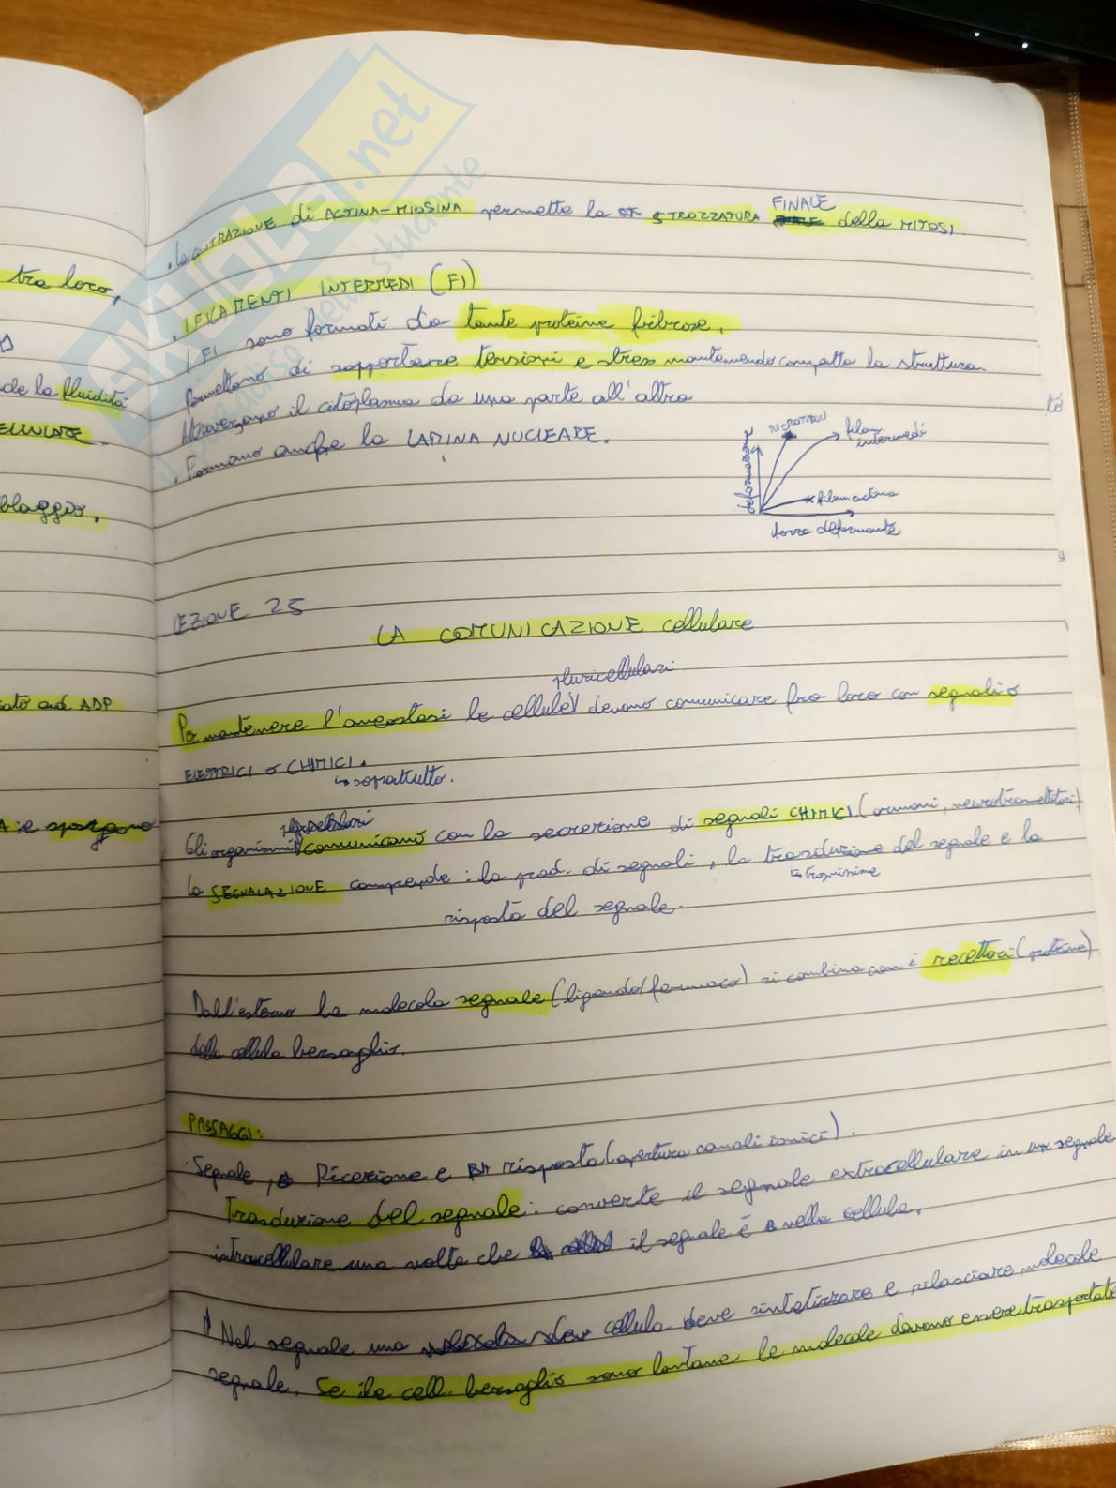 SKUOLA.net
tra loro,
de la fluidità
blaggio.
ADP
e spargono
di ACTINA-MIOSINA permette la STROZZATURA FINALE della MITOSI.
FILAMENTI INTERMEDI (FI)
I FI sono formati da tante proteine fibrose.
Permettono di sopportare torsioni e stress mantenendo compatta la struttura
Attraversano il citoplasma da una parte all'altra
Formano anche la LAMINA NUCLEARE.
deformazione
filam intermedi
filam actina
forza deformante
LEZIONE 25
LA COMUNICAZIONE cellulare
pluricellulari
Per mantenere l' le cellule devono comunicare fra loro con segnali
ELETTRICI o CHIMICI.
↳ sopratutto.
Gli organismi comunicano con la secrezione di segnali CHIMICI (ormoni, neurotrasmettitori)
la SEGNALAZIONE comprende: la prod. di segnali, la trasduzione del segnale e la
risposta del segnale.
Dall'esterno la molecola segnale (ligando/farmaco) si combina con i recettori (proteine)
della cellula bersaglio.
PASSAGGI:
Segnale, Ricezione e risposta (apertura canali ionici).
Trasduzione del segnale: converte il segnale extracellulare in un segnale
intracellulare una volta che il segnale è nella cellula.
Nel segnale una cellula deve sintetizzare e rilasciare molecole
segnale. Se le cell. bersaglio sono lontane le molecole devono essere trasportate